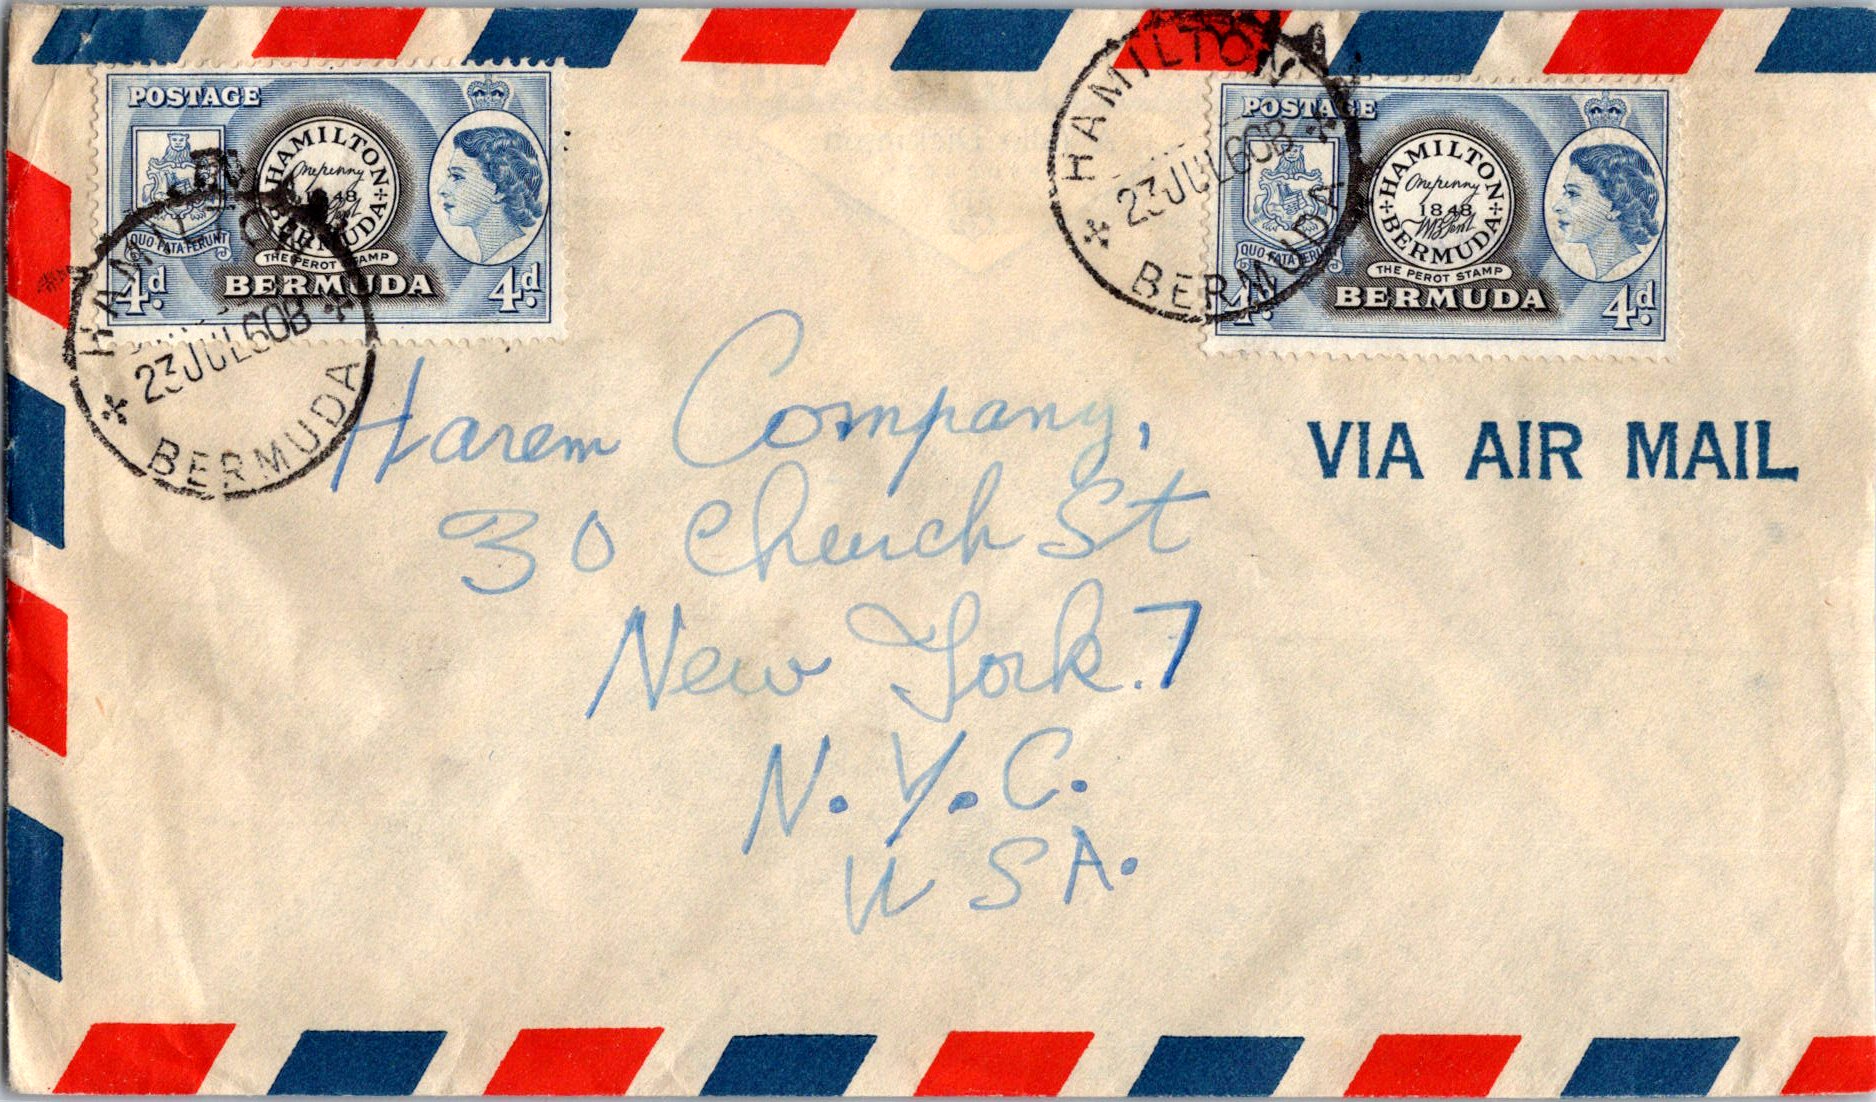 POSTAGE
HAMILTON
Onepenny
1848
BERMUDA
QUO FATA FERUNT
THE PEROT STAMP
4d BERMUDA 4d
HAMILTON
23 JUL 60 B
BERMUDA
POSTAGE
HAMILTON
Onepenny
1848
BERMUDA
QUO FATA FERUNT
THE PEROT STAMP
4d BERMUDA 4d
HAMILTON
23 JUL 60 B
BERMUDA
VIA AIR MAIL
Harem Company,
30 Church St
New York. 7
N.Y.C.
USA.